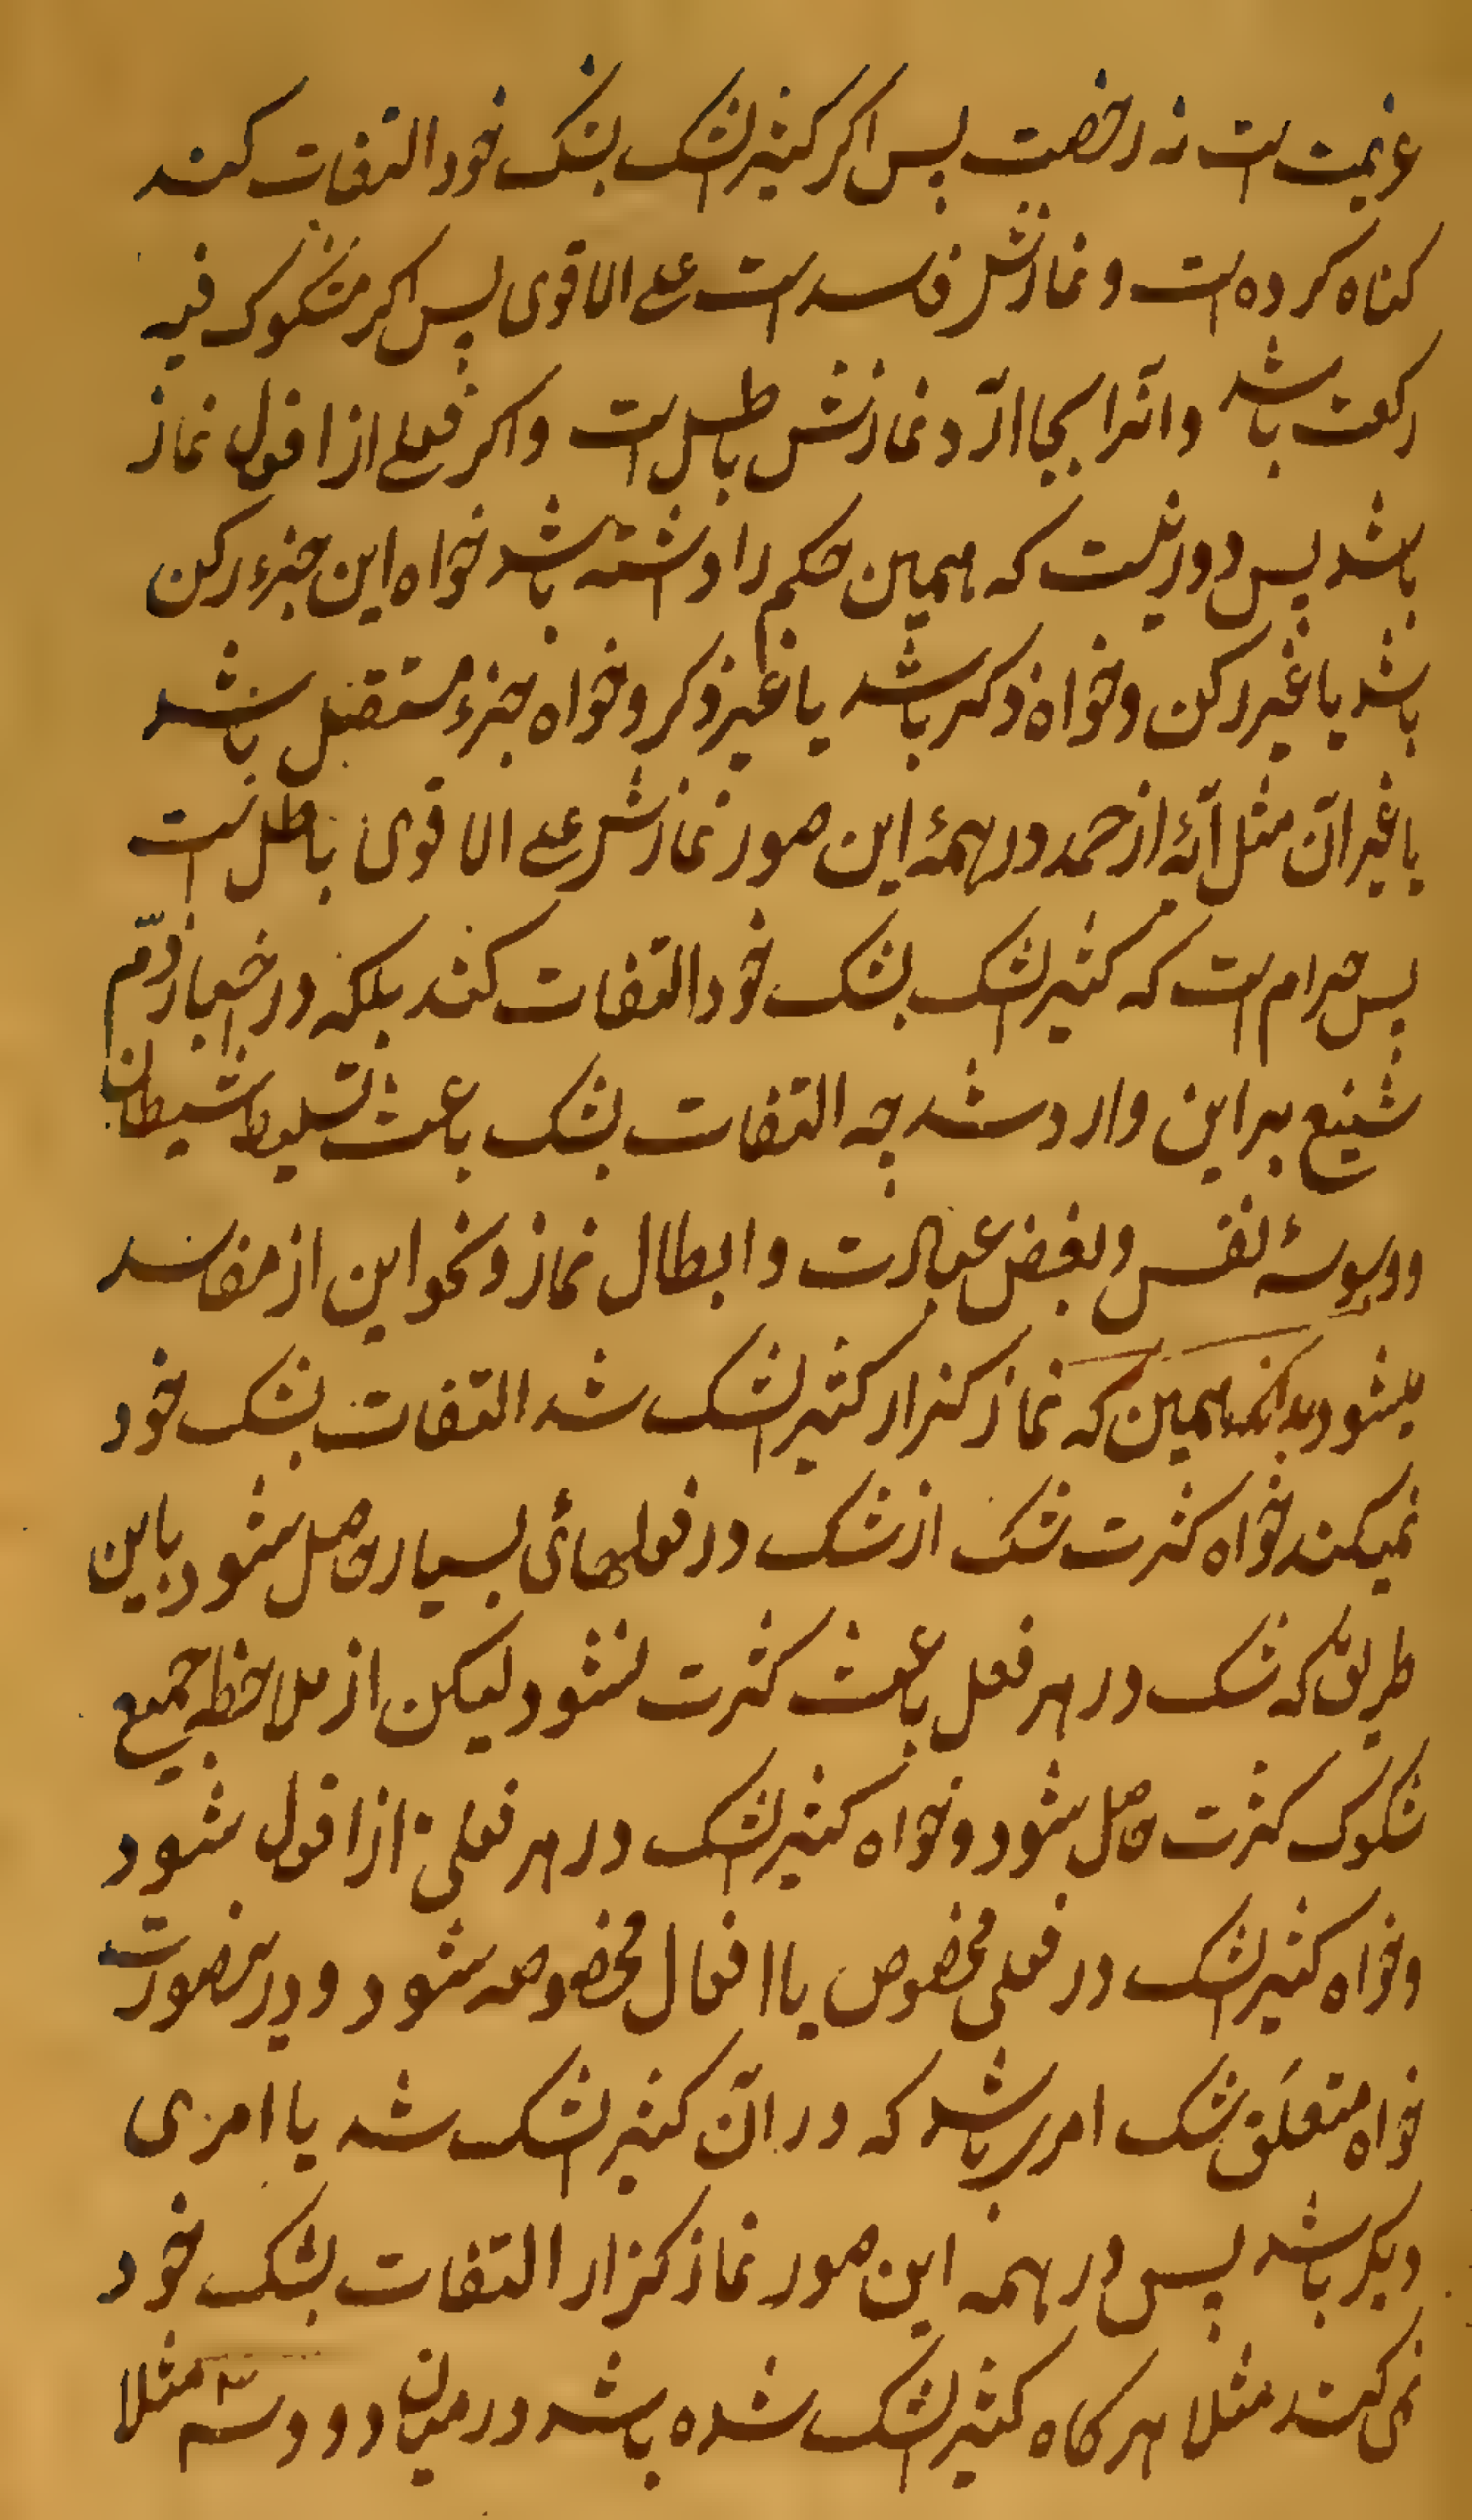 عزیمت است نه رخصت پس اکر کثیر الشک بشک خود التفات کند
کناه کرده است و نمازش فاسد است علی الاقوی پس اکر مشکوک فیه
رکعت باشد و آنرا بجا ارد نمازش باطل است و اکر فعلی از افعال نماز
باشد پس دور نیست که همین حکم را داشته باشد خواه این جزء رکن
باشد یا غیر رکن و خواه ذکر باشد یا غیر ذکر و خواه جزء مستقل باشد
یا غیر آن مثل آئه از حمد در همهٔ این صور نمازش علی الاقوی باطل است
پس حرام است که کثیر الشک بشک خود التفات کند بلکه در اخبار ذمّ
شنیع بر این وارد شده چه التفات بشک باعث تسلیط شیطان
و وسوسهٔ نفس و بغض عبادت و ابطال نماز و نحو این از مفاسد
میشود بدانکه همین که نماز کزار کثیر الشک شد التفات بشک خود
نمیکند خواه کثرت شک از شک در فعلهائی بسیار حاصل شود باین
طریق که شک در هر فعل باعث کثرت نشود لیکن از ملاحظه جمیع
شکوک کثرت حاصل شود و خواه کثیر الشک در هر فعلی از افعال شود
و خواه کثیر الشک در فعلی مخصوص یا افعال مخصوصه شود و در هر صورت
خواه متعلّق شک امری باشد که در آن کثیر الشک شد یا امری
دیکر باشد پس در همه این صور نماز کزار التفات بشک خود
نمی کند مثلا هر کاه کثیر الشک شده باشد در میان دو و سه مثلا